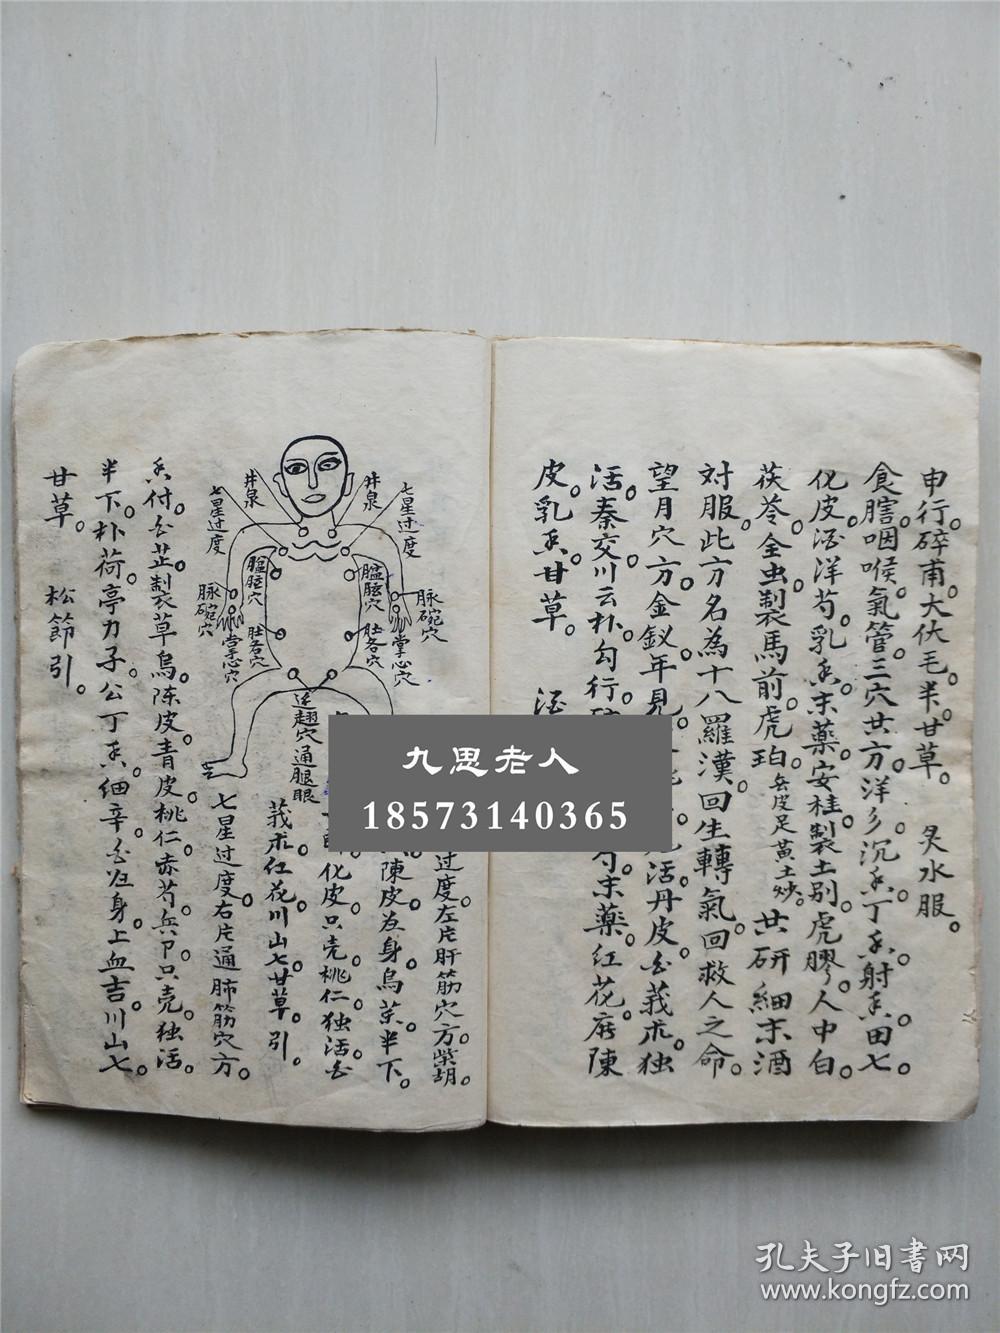 申行。碎甫。大伏毛。半。甘草。 炙水服。
食膪。咽喉。氣管。三穴共方。洋彡。沉香。丁香。射香。田七。
化皮。洒洋芍。乳香。末藥。安桂。製土别。虎膠。人中白。
茯苓。全虫。製馬前。虎珀。去皮足黄土炒。共研細末酒
対服。此方名為十八羅漢。回生轉氣。回救人之命。
望月穴方。金釵。年見。
活。秦交。川云。朴。勾。行。
活。丹皮。莪朮。独
芍。末藥。红花。
陳
皮。乳香。甘草。
井泉
井泉
七星过度
七星过度
脉碗穴
脉碗穴
掌心穴
掌心穴
肚各穴
肚各穴
通腿眼
过度。左片肝筋穴方。柴胡。
陳皮。烏茶。半下。
化皮。只壳。桃仁。独活。
莪朮。红花。川山七。甘草。引。
七星过度。右片通肺筋穴方。
香付。芷。製草烏。陈皮。青皮。桃仁。赤芍。兵卩。只壳。独活。
半下。朴荷。亭力子。公丁香。细辛。归身。上血吉。川山七。
甘草。 松節引。
九思老人
18573140365
孔夫子旧書网
www.kongfz.com